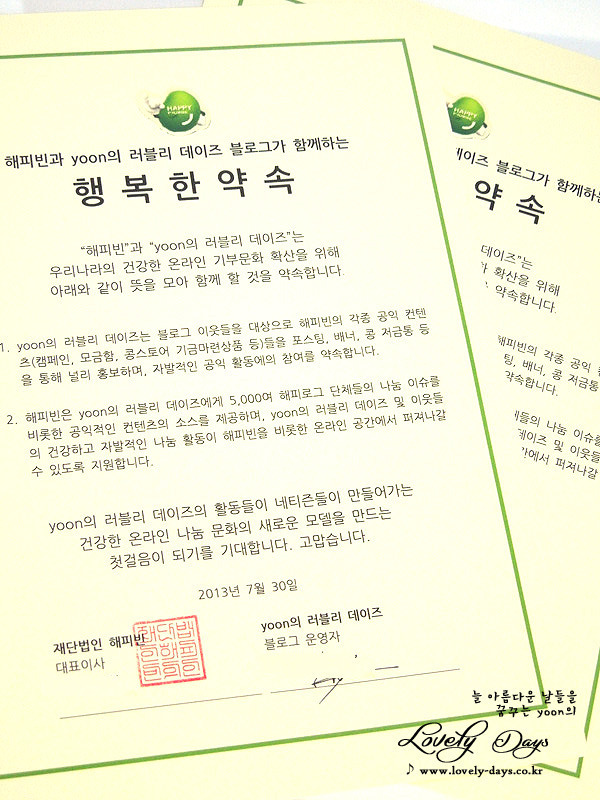 HAPPY
해피빈과 yoon의 러블리 데이즈 블로그가 함께하는
행복한약속
"해피빈"과 "yoon의 러블리 데이즈"는
우리나라의 건강한 온라인 기부문화 확산을 위해
아래와 같이 뜻을 모아 함께 할 것을 약속합니다.
1. yoon의 러블리 데이즈는 블로그 이웃들을 대상으로 해피빈의 각종 공익 컨텐
츠(캠페인, 모금함, 콩스토어 기금마련상품 등)들을 포스팅, 배너, 콩 저금통 등
을 통해 널리 홍보하며, 자발적인 공익 활동에의 참여를 약속합니다.
2. 해피빈은 yoon의 러블리 데이즈에게 5,000여 해피로그 단체들의 나눔 이슈를
비롯한 공익적인 컨텐츠의 소스를 제공하며, yoon의 러블리 데이즈 및 이웃들
의 건강하고 자발적인 나눔 활동이 해피빈을 비롯한 온라인 공간에서 퍼져나갈
수 있도록 지원합니다.
yoon의 러블리 데이즈의 활동들이 네티즌들이 만들어가는
건강한 온라인 나눔 문화의 새로운 모델을 만드는
첫걸음이 되기를 기대합니다. 고맙습니다.
2013년 7월 30일
재단법인 해피빈
대표이사
yoon의 러블리 데이즈
블로그 운영자
HAPPY
데이즈 블로그가 함께하는
약속
데이즈"는
확산을 위해
약속합니다.
해피빈의 각종 공익
팅, 배너, 콩 저금통
약속합니다.
들의 나눔 이슈를
데이즈 및 이웃들
에서 퍼져나갈
늘 아름다운 날들을
꿈꾸는 yoon의
Lovely Days
♪ www.lovely-days.co.kr